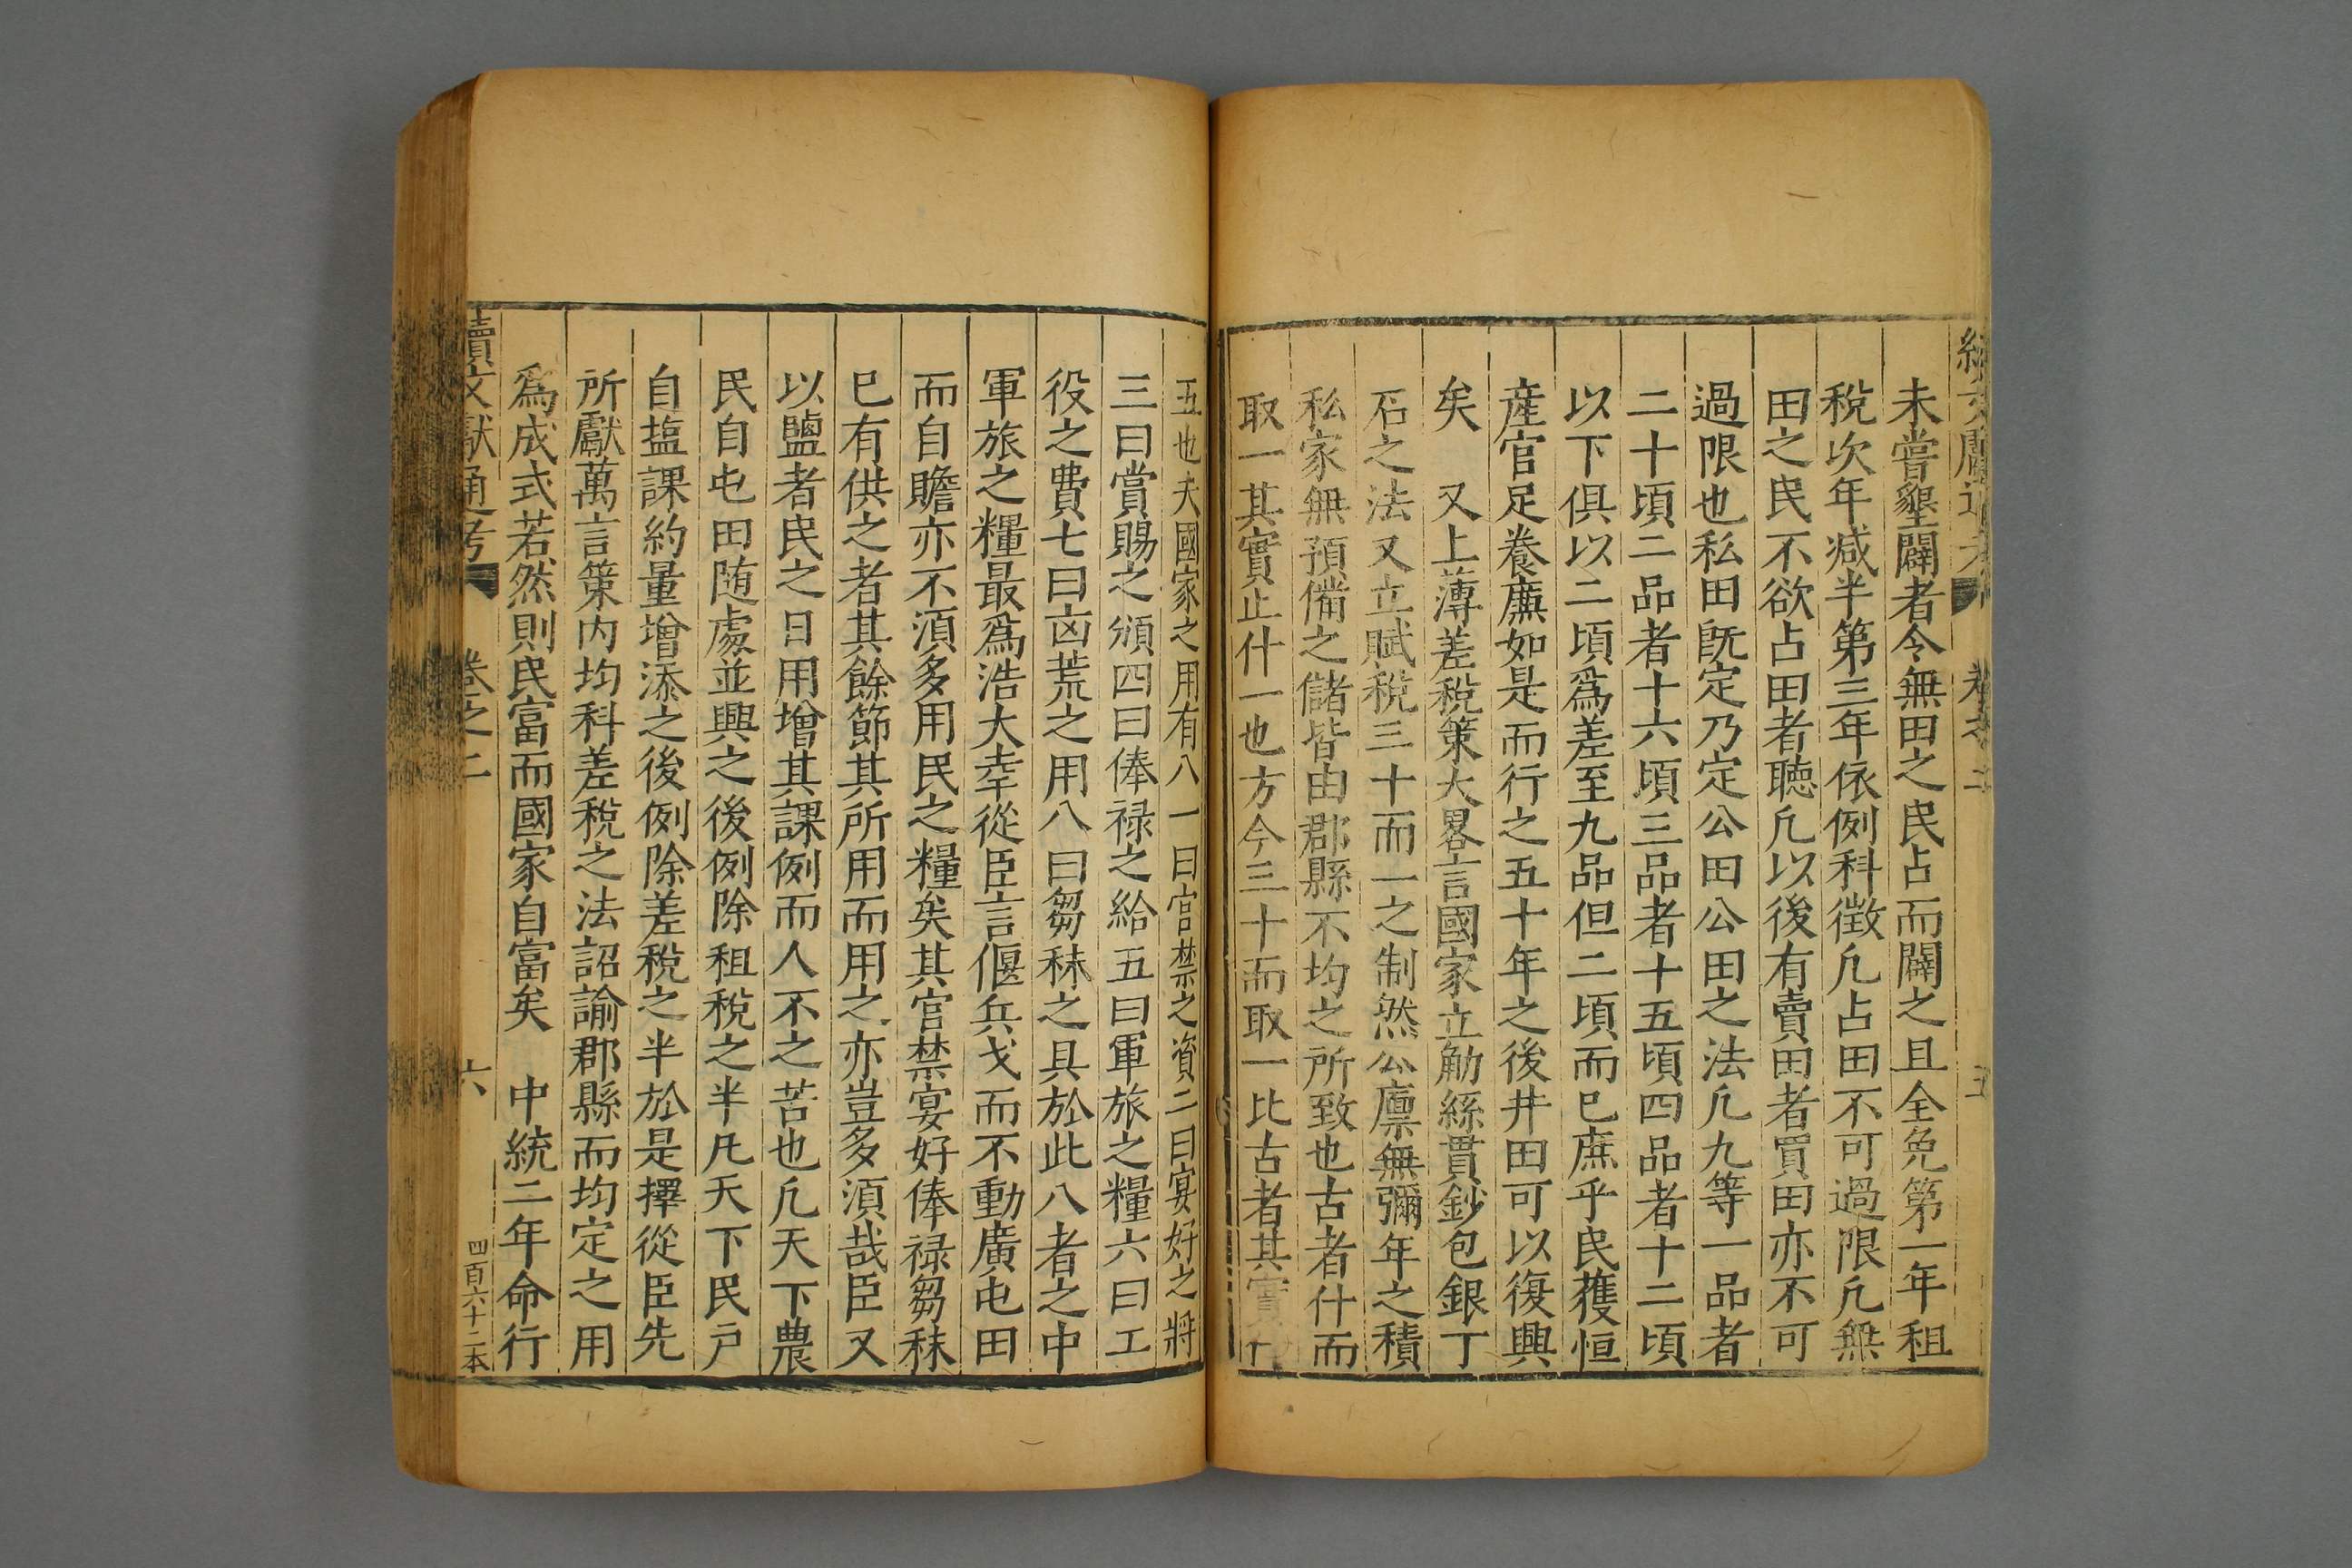 未嘗墾闢者令無田之民占而闢之且全免第一年租
稅次年减半第三年依例科徴凢占田不可過限凢無
田之民不欲占田者聴凢以後有賣田者買田亦不可
過限也私田旣定乃定公田公田之法凢九等一品者
二十頃二品者十六頃三品者十五頃四品者十二頃
以下俱以二頃爲差至九品但二頃而已庶乎民獲恒
産官足養廉如是而行之五十年之後井田可以復興
矣　又上薄差稅策大畧言國家立觔絲貫鈔包銀丁
石之法又立賦稅三十而一之制然公廪無彌年之積
私家無預備之儲皆由郡縣不均之所致也古者什而
取一其實止什一也方今三十而取一比古者其實
五也夫國家之用有八一曰宫禁之資二曰宴好之將
三曰賞賜之頒四曰俸禄之給五曰軍旅之糧六曰工
役之費七曰凶荒之用八曰芻秣之具於此八者之中
軍旅之糧最爲浩大幸從臣言偃兵戈而不動廣屯田
而自贍亦不湏多用民之糧矣其官禁宴好俸禄芻秣
已有供之者其餘節其所用而用之亦豈多湏哉臣又
以鹽者民之日用增其課例而人不之苦也凢天下農
民自屯田随處並興之後例除租稅之半凡天下民戸
自塩課約量增添之後例除差稅之半於是擇從臣先
所獻萬言策内均科差稅之法詔諭郡縣而均定之用
爲成式若然則民富而國家自富矣　中統二年命行
續文獻通考　卷之二　六　四百六十二本